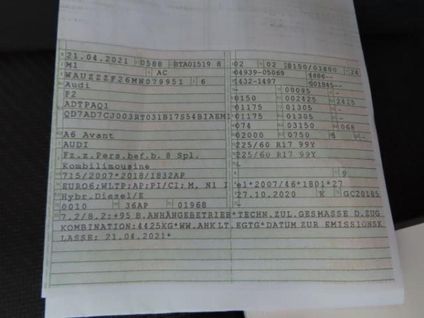 21.04.2021 0588 BTA01519 8 02 02 0150/03800 24
M1 AC 04939-05069 1886--
WAUZZZF26MN079951 6 1432-1497 001845--
Audi - 00095 -
F2 0150 002425 2425
ADTPAQ1 01175 01305 -
QD7AD7CJ003RT031B17S54BIAEM1 01175 01305 -
- 074 03150 068
A6 Avant 02000 0750 5 -
AUDI 225/60 R17 99Y
Fz.z.Pers.bef.b. 8 Spl. 225/60 R17 99Y
Kombilimousine
715/2007*2018/1832AP 9
EURO6;WLTP;AP;PI/CI; M, N1 I e1*2007/46*1801*27
Hybr.Diesel/E 27.10.2020 K GC20185
0010 36AP 01968
7.2/8.2:+95 B.ANHÄNGEBETRIEB*TECHN.ZUL.GESMASSE D.ZUG
KOMBINATION:4425KG*WW.AHK LT.EGTG*DATUM ZUR EMISSIONSK
LASSE: 21.04.2021*